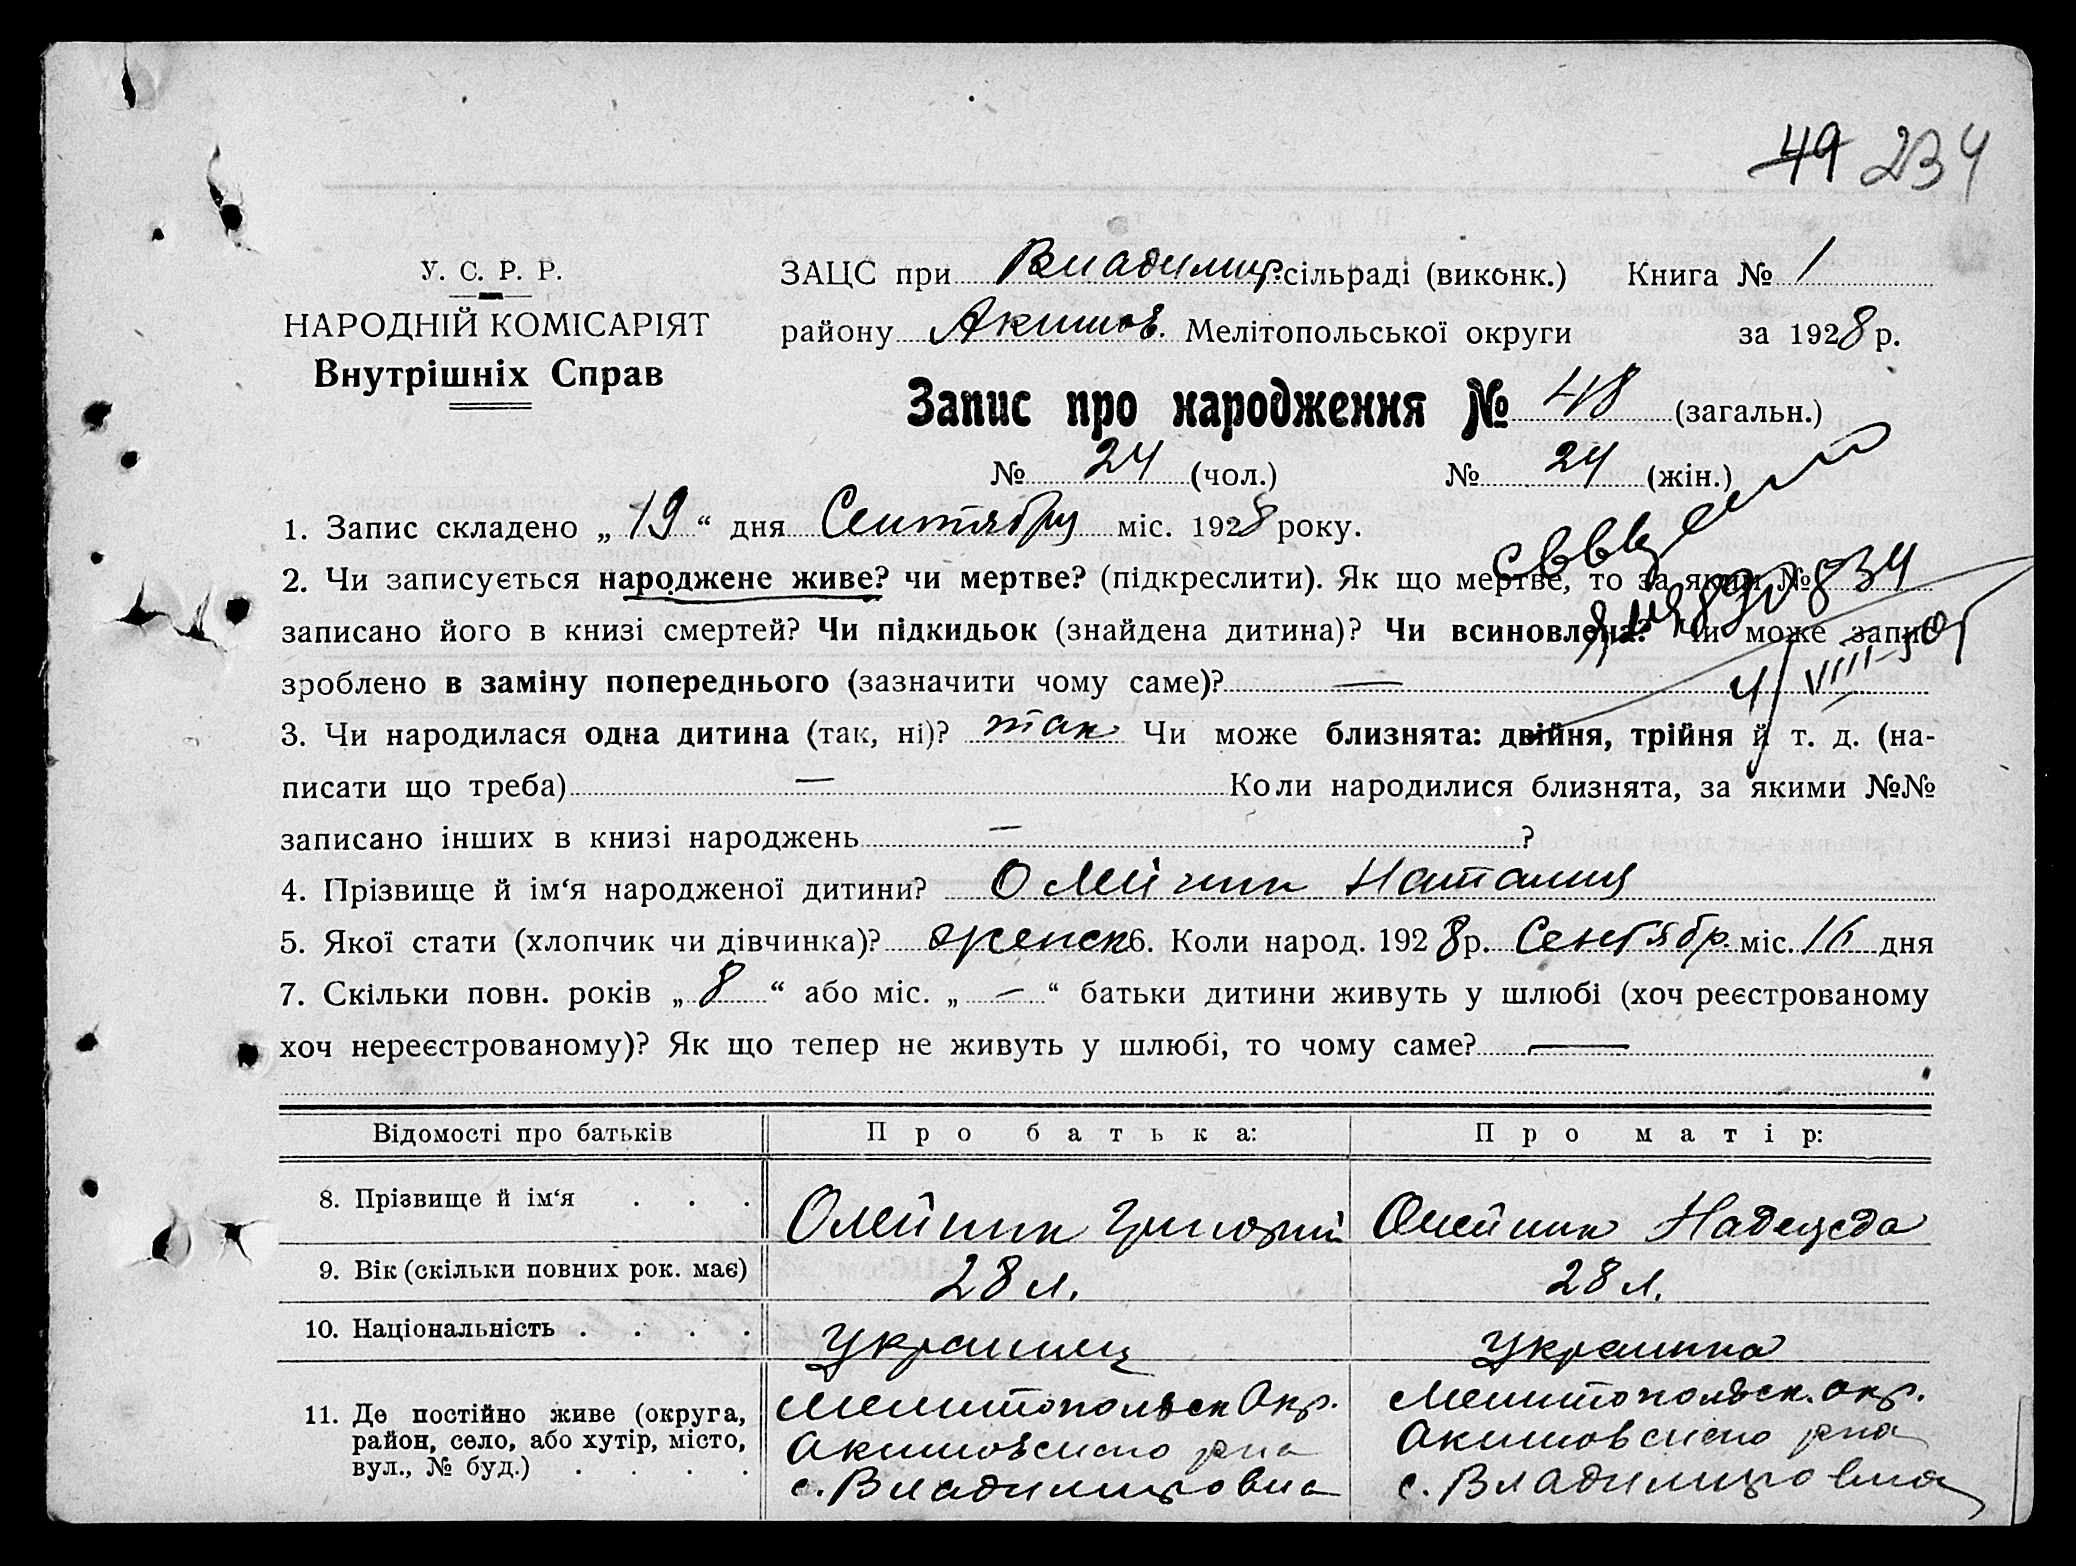 49 234
У. С. Р. Р.
НАРОДНІЙ КОМІСАРІЯТ
Внутрішніх Справ
ЗАЦС при Владимир. сільраді (виконк.) Книга № 1
району Акимов. Мелітопольської округи за 1928 р.
Запис про народження № 48 (загальн.)
№ 24 (чол.) № 24 (жін.)
1. Запис складено „19“ дня Сентября міс. 1928 року.
2. Чи записується народжене живе? чи мертве? (підкреслити). Як що мертве, то за яким №
записано його в книзі смертей? Чи підкидьок (знайдена дитина)? Чи всиновлена? Чи може запис
зроблено в заміну попереднього (зазначити чому саме)? —
3. Чи народилася одна дитина (так, ні)? так Чи може близнята: двійня, трійня й т. д. (на-
писати що треба) — Коли народилися близнята, за якими №№
записано інших в книзі народжень — ?
4. Прізвище й ім‘я народженої дитини? Олійник Наталия
5. Якої стати (хлопчик чи дівчинка)? женск 6. Коли народ. 1928 р. Сентябр. міс. 16 дня
7. Скільки повн. років „8“ або міс. „—“ батьки дитини живуть у шлюбі (хоч реєстрованому
хоч нереєстрованому)? Як що тепер не живуть у шлюбі, то чому саме? —
Відомості про батьків Про батька: Про матір:
8. Прізвище й ім‘я . . . Олейник Григорий Олейник Надежда
9. Вік (скільки повних рок. має) 28 л. 28 л.
10. Національність . . . . Украинец Украинка
11. Де постійно живе (округа, район, село, або хутір, місто, вул., № буд.) . . . .
Мелитопольск Окр. Мелитопольск. окр.
Акимовского рна Акимовского рна
с. Владимировка с. Владимировка